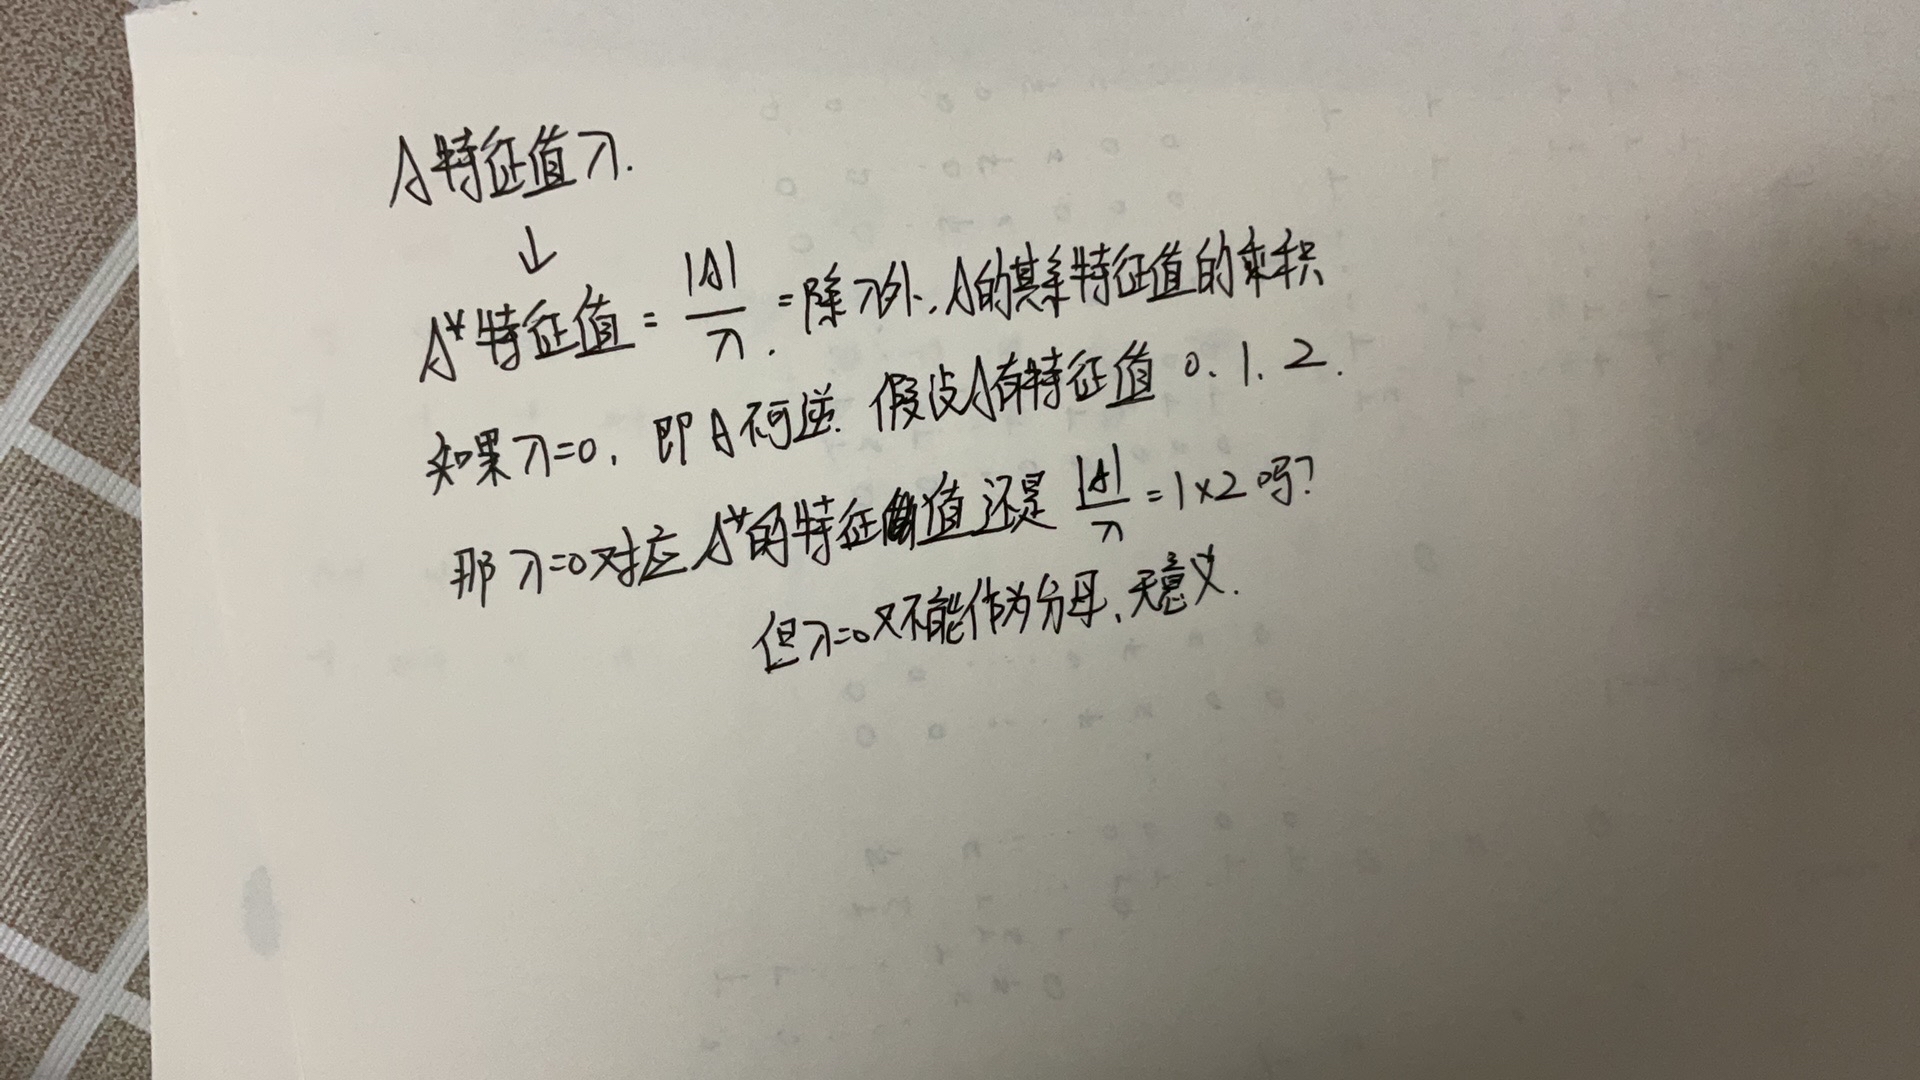 A特征值λ.
↓
A*特征值 = |A|/λ. = 除λ外,A的其余特征值的乘积
如果λ=0,即A不可逆.假设A有特征值0.1.2.
那λ=0对应A*的特征值还是|A|/λ=1×2吗?
但λ=0又不能作为分母,无意义.